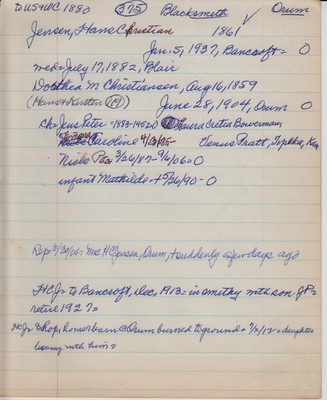 to US+UC 1880 (375) Blacksmith Orum
Jensen, Hans Christian 1861 ✓
Jan. 5, 1937, Bancroft = O
md = July 17, 1882, Blair
Dorthea M Christiansen, Aug 16, 1859
(Hans + Kirsten ) June 28, 1904, Orum O
ch = Jens Peter -1883-1952 O Thura Cretia Bowerman,
Caroline 4/ /85- Dennis Pratt, Topeka, Kas
Niels P 3/26/87-9/6/06=O
infant Mathilde-+ 5/26/90-O
Rep: 3/ /04: Mrs HC Jensen, Orum, + suddenly a few days ago
HCJr to Bancroft, Dec, 1913 = in smithy with son JP=
retire 1927=
HCJr shop, home + barn @ Orum burned to ground = 7/5/12 = daughter
living with him =